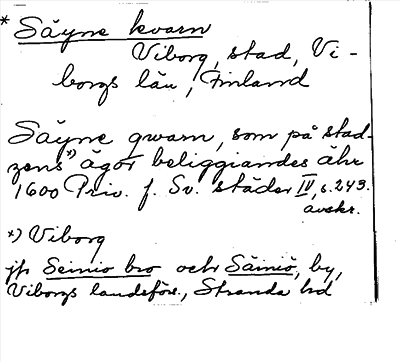 * Säyne kvarn
Viborg, stad, Vi-
borgs län, Finland
Säyne qwarn, som på stad-
zens *) ägor beliggiandes ähr
1600 Priv. f. Sv. städer IV, s. 243.
avskr.
*) Viborg
jfr Seinio bro och Säiniö, by,
Viborgs landsförs., Stranda hd